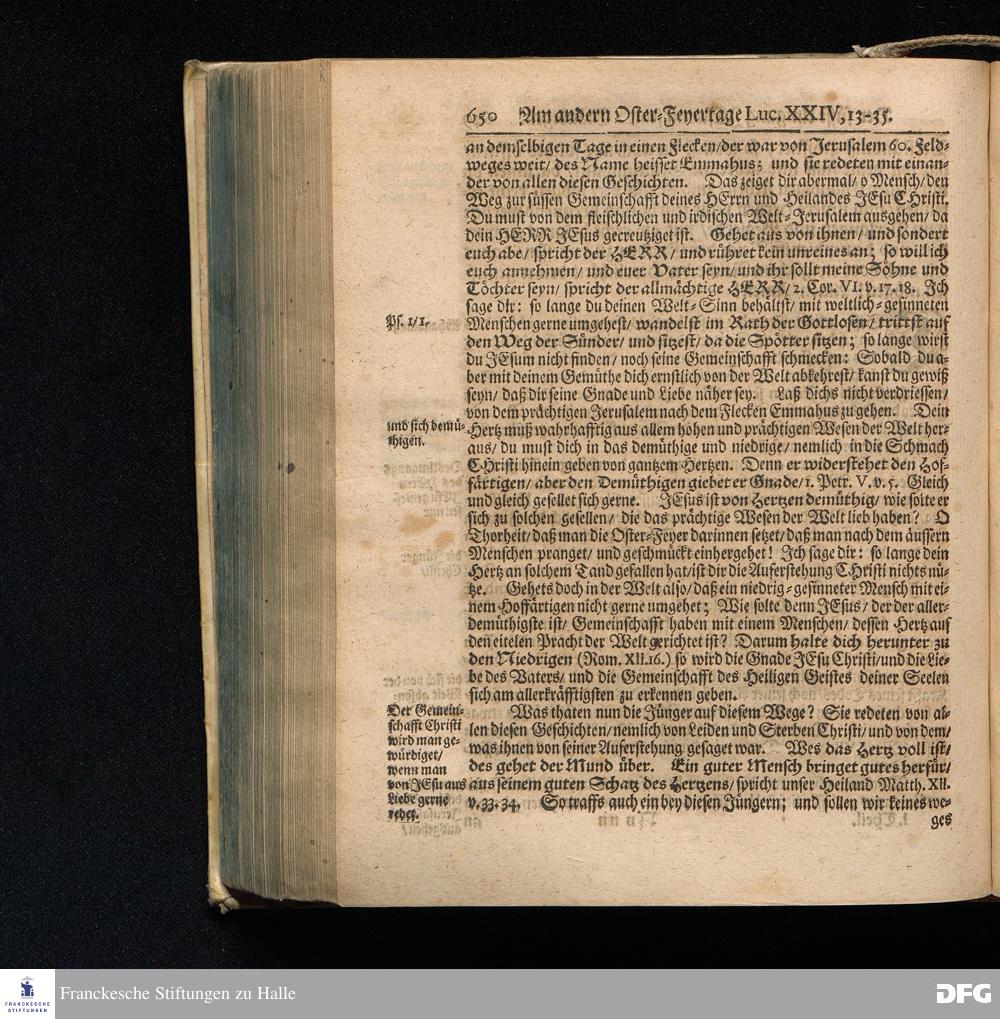 650 Am andern Oster-Feyertage Luc. XXIV, 13-35.
an demselbigen Tage in einen Flecken/der war von Jerusalem 60. Feld-
weges weit/ des Name heisset Emmahus; und sie redeten mit einan-
der von allen diesen Geschichten. Das zeiget dir abermal/ o Mensch/ den
Weg zur süssen Gemeinschafft deines HErrn und Heilandes JEsu CHristi.
Du must von dem fleischlichen und irdischen Welt-Jerusalem ausgehen/ da
dein HERR JEsus gecreutziget ist. Gehet aus von ihnen/ und sondert
euch abe/ spricht der HERR/ und rühret kein unreines an; so will ich
euch annehmen/ und euer Vater seyn/ und ihr sollt meine Söhne und
Töchter seyn/ spricht der allmächtige HERR/ 2. Cor. VI. v. 17. 18. Ich
sage dir: so lange du deinen Welt-Sinn behältst/ mit weltlich-gesinneten
Ps. 1/1.
Menschen gerne umgehest/ wandelst im Rath der Gottlosen/ trittst auf
den Weg der Sünder/ und sitzest/ da die Spötter sitzen; so lange wirst
du JEsum nicht finden/ noch seine Gemeinschafft schmecken: Sobald du a-
ber mit deinem Gemüthe dich ernstlich von der Welt abkehrest/ kanst du gewiß
seyn/ daß dir seine Gnade und Liebe näher sey. Laß dichs nicht verdriessen/
von dem prächtigen Jerusalem nach dem Flecken Emmahus zu gehen. Dein
und sich demü-
thigen.
Hertz muß wahrhafftig aus allem hohen und prächtigen Wesen der Welt her-
aus/ du must dich in das demüthige und niedrige/ nemlich in die Schmach
CHristi hinein geben von gantzem Hertzen. Denn er widerstehet den Hof-
färtigen/ aber den Demüthigen giebet er Gnade/ 1. Petr. V. v. 5. Gleich
und gleich gesellet sich gerne. JEsus ist von Hertzen demüthig/ wie solte er
sich zu solchen gesellen/ die das prächtige Wesen der Welt lieb haben? O
Thorheit/ daß man die Oster-Feyer darinnen setzet/ daß man nach dem äussern
Menschen pranget/ und geschmückt einhergehet! Ich sage dir: so lange dein
Hertz an solchem Tand gefallen hat/ ist dir die Auferstehung CHristi nichts nü-
tze. Gehets doch in der Welt also/ daß ein niedrig-gesinneter Mensch mit ei-
nem Hoffärtigen nicht gerne umgehet; Wie solte denn JEsus/ der der aller-
demüthigste ist/ Gemeinschafft haben mit einem Menschen/ dessen Hertz auf
den eitelen Pracht der Welt gerichtet ist? Darum halte dich herunter zu
den Niedrigen (Rom. XII. 16.) so wird die Gnade JEsu Christi/und die Lie-
be des Vaters/ und die Gemeinschafft des Heiligen Geistes deiner Seelen
sich am allerkräfftigsten zu erkennen geben.
Der Gemein-
schafft Christi
wird man ge-
würdiget/
wenn man
von JEsu aus
Liebe gerne
redet.
Was thaten nun die Jünger auf diesem Wege? Sie redeten von al-
len diesen Geschichten/ nemlich von Leiden und Sterben Christi/ und von dem/
was ihnen von seiner Auferstehung gesaget war. Wes das Hertz voll ist/
des gehet der Mund über. Ein guter Mensch bringet gutes herfür/
aus seinem guten Schatz des Hertzens/ spricht unser Heiland Matth. XII.
v. 33. 34. So traffs auch ein bey diesen Jüngern; und sollen wir keines we-
ges
FRANCKESCHE
STIFTUNGEN
Franckesche Stiftungen zu Halle
DFG